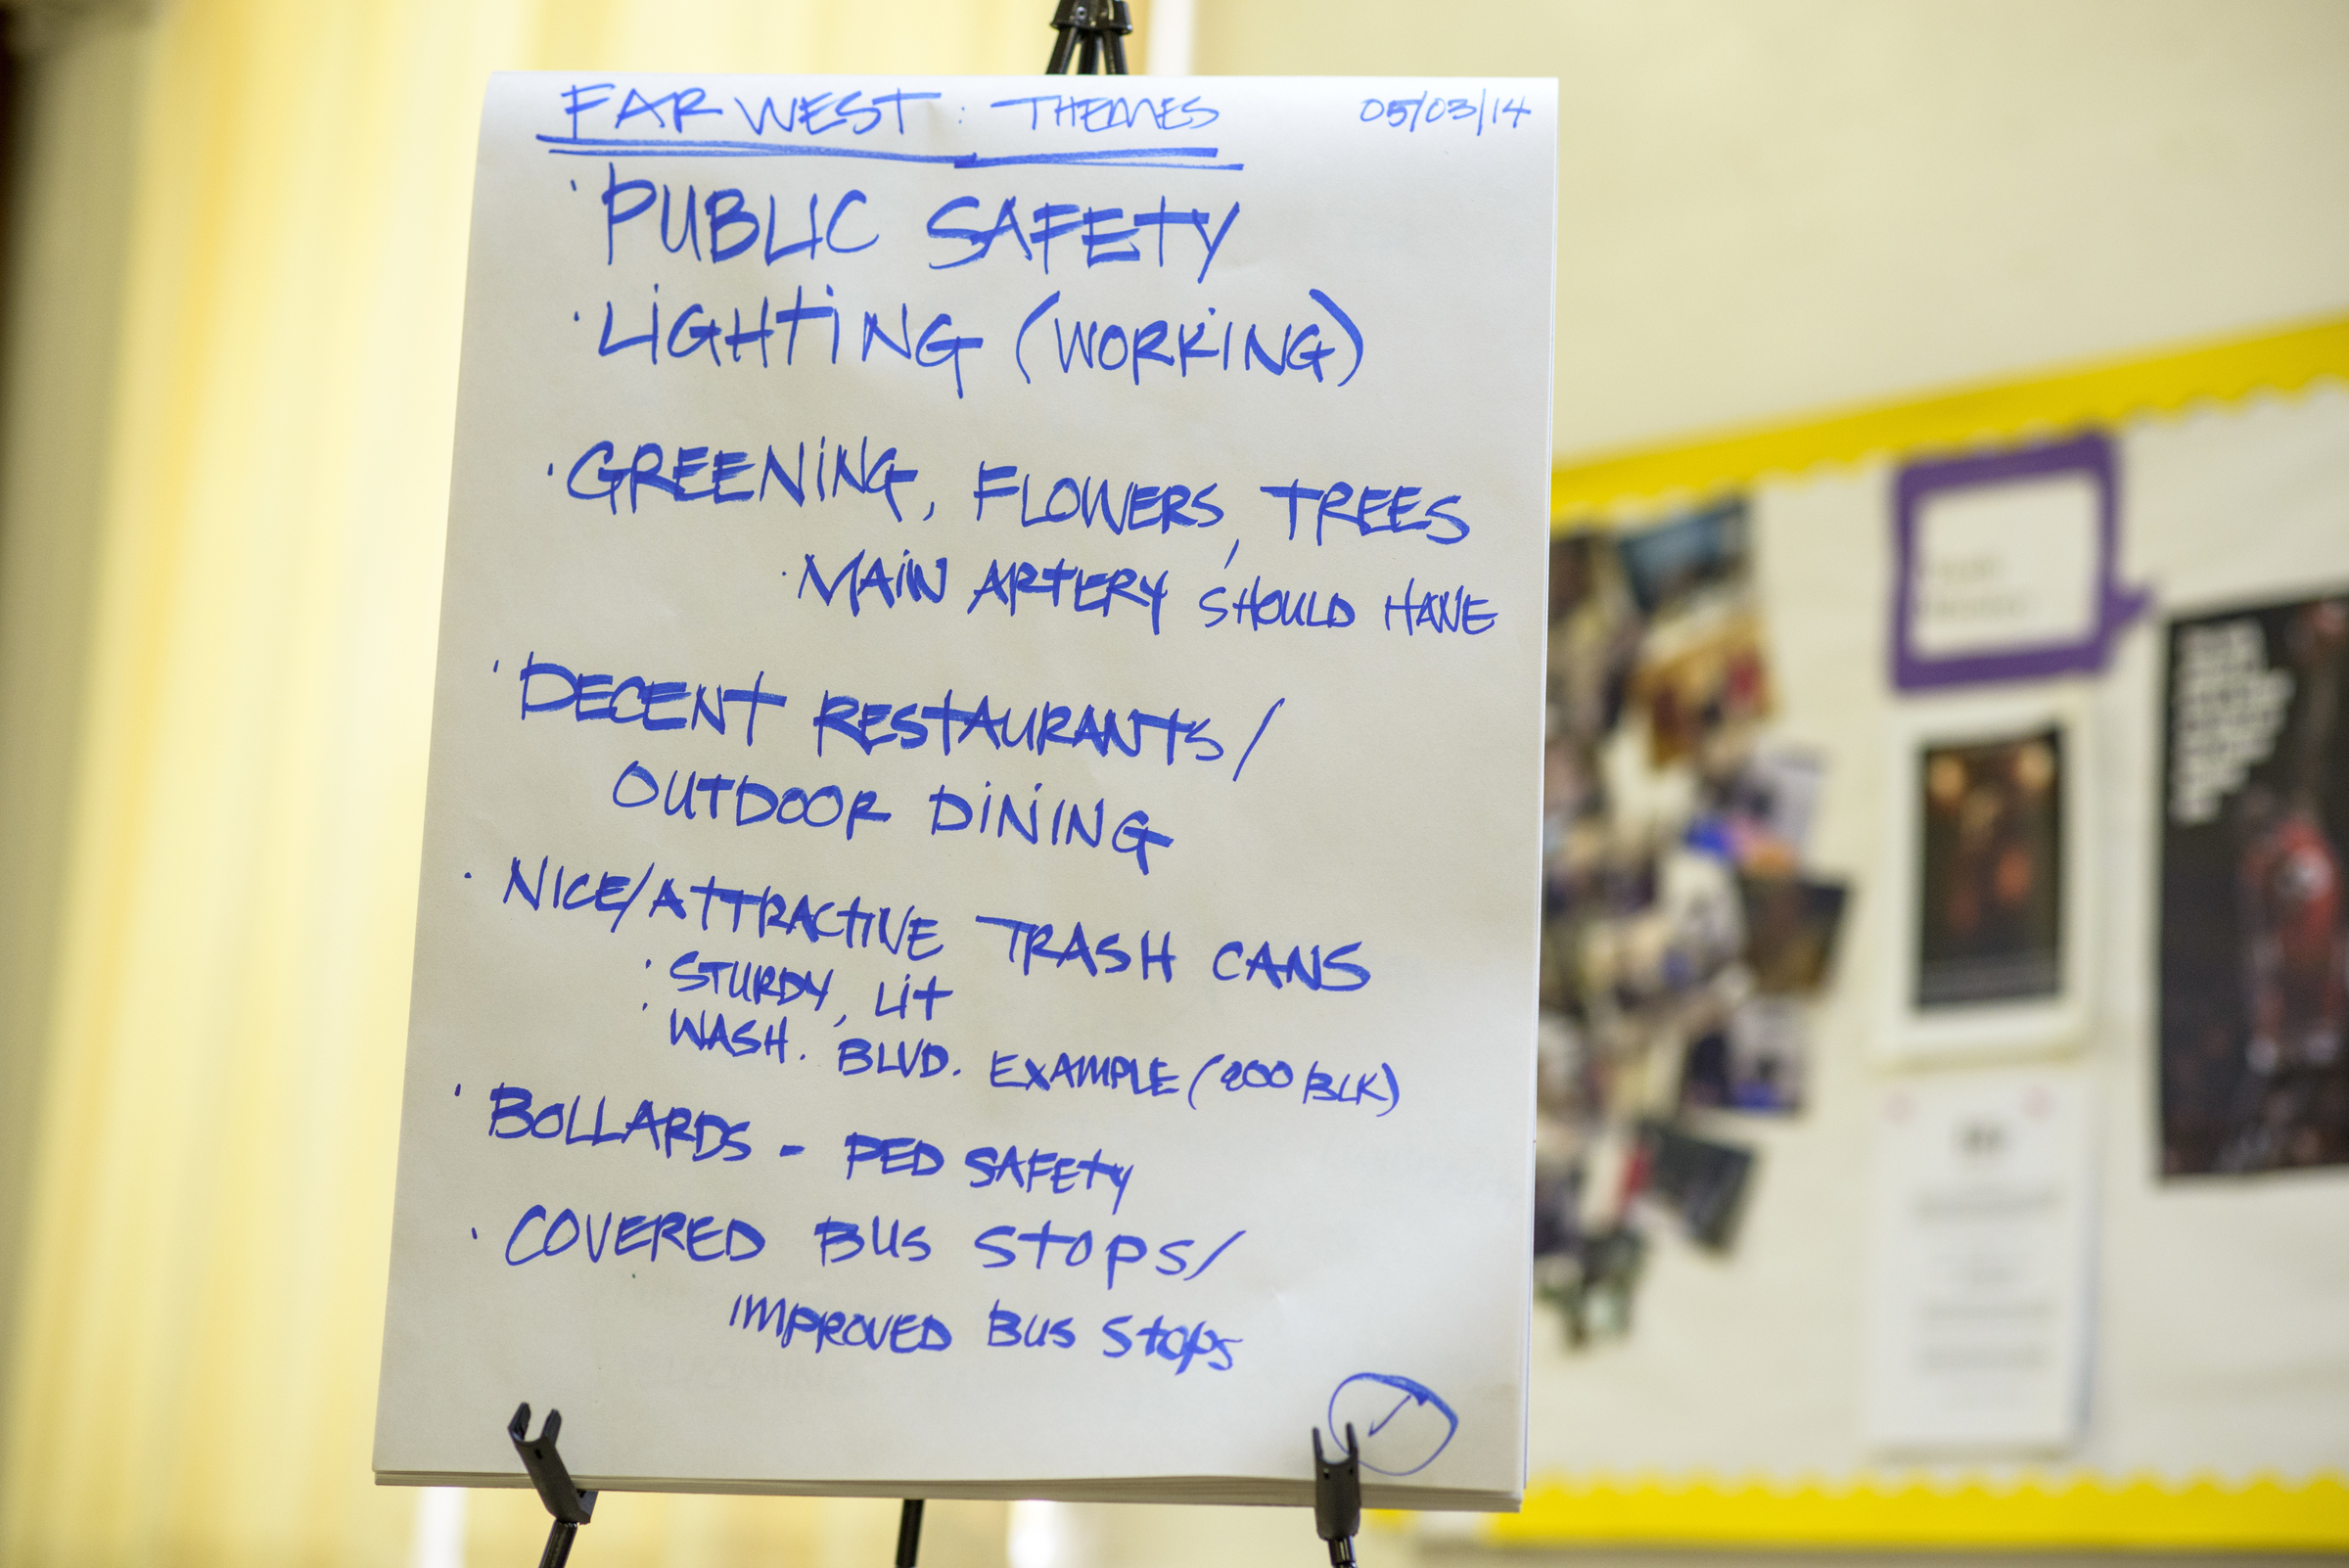 FAR WEST: THEMES 05/03/14
· PUBLIC SAFETY
· LIGHTING (WORKING)
· GREENING, FLOWERS, TREES
· MAIN ARTERY SHOULD HAVE
· DECENT RESTAURANTS/
OUTDOOR DINING
· NICE/ATTRACTIVE TRASH CANS
· STURDY, LIT
· WASH. BLVD. EXAMPLE (200/BLK)
· BOLLARDS - PED SAFETY
· COVERED BUS STOPS/
IMPROVED BUS STOPS